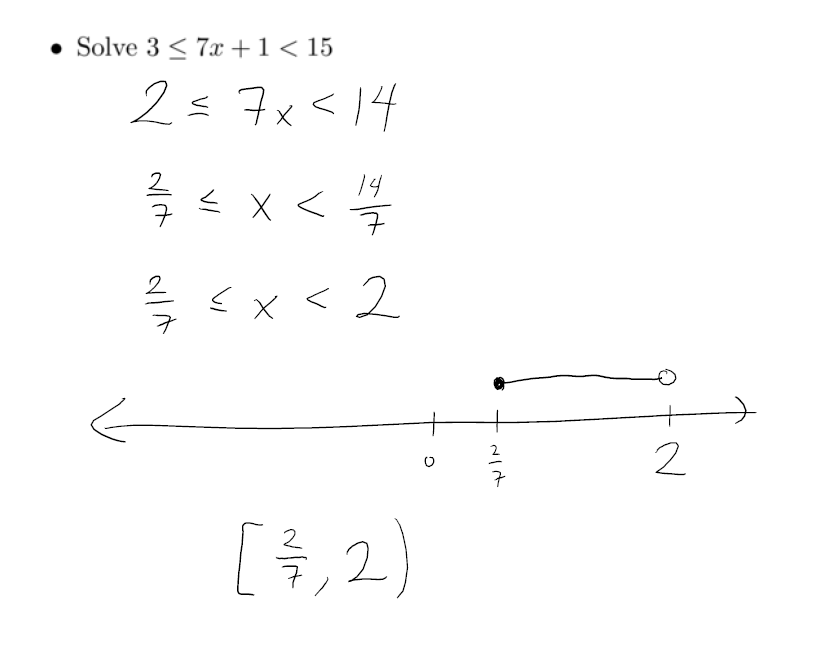 • Solve 3 ≤ 7x + 1 < 15
2 ≤ 7x < 14
2/7 ≤ x < 14/7
2/7 ≤ x < 2
0 2/7 2
[2/7, 2)